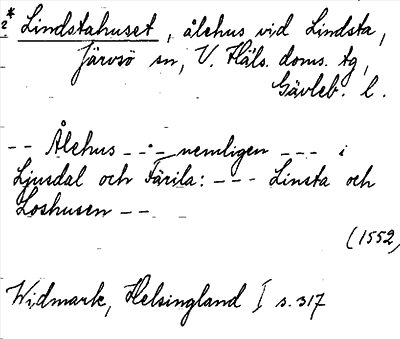 * Lindstahuset, ålehus vid Lindsta,
Järvsö sn, V. Häls. doms. tg,
Gävleb. l.
-- Ålehus --- nemligen --- i
Ljusdal och Färila: --- Linsta och
Loshusen --
(1552)
Widmark, Helsingland I s. 317